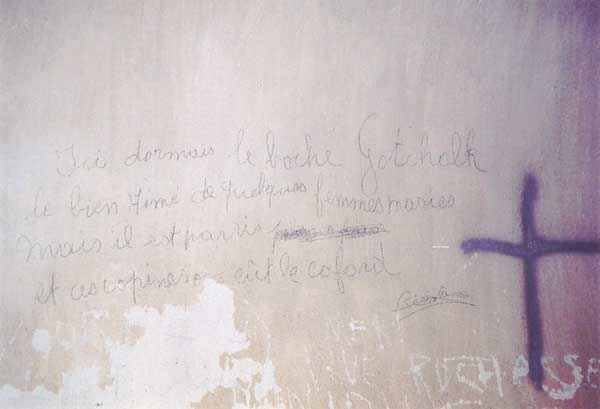 Ici dormais le boche Gotchalk
le bien aimé de quelques femmes mariés
Mais il est parris
et ces copines on eût le caford
RUCHASSE